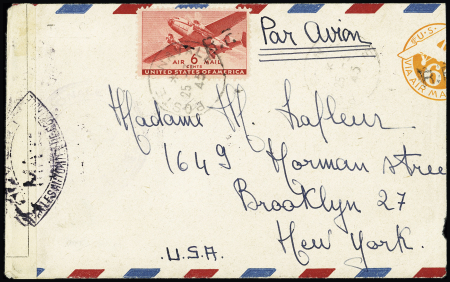 Par Avion
U.S.
AIR MAIL
6
CENTS
UNITED STATES OF AMERICA
VIA AIR MAIL
Madame M. Lafleur
1649 Horman Stree
Brooklyn 27
New York.
U.S.A.